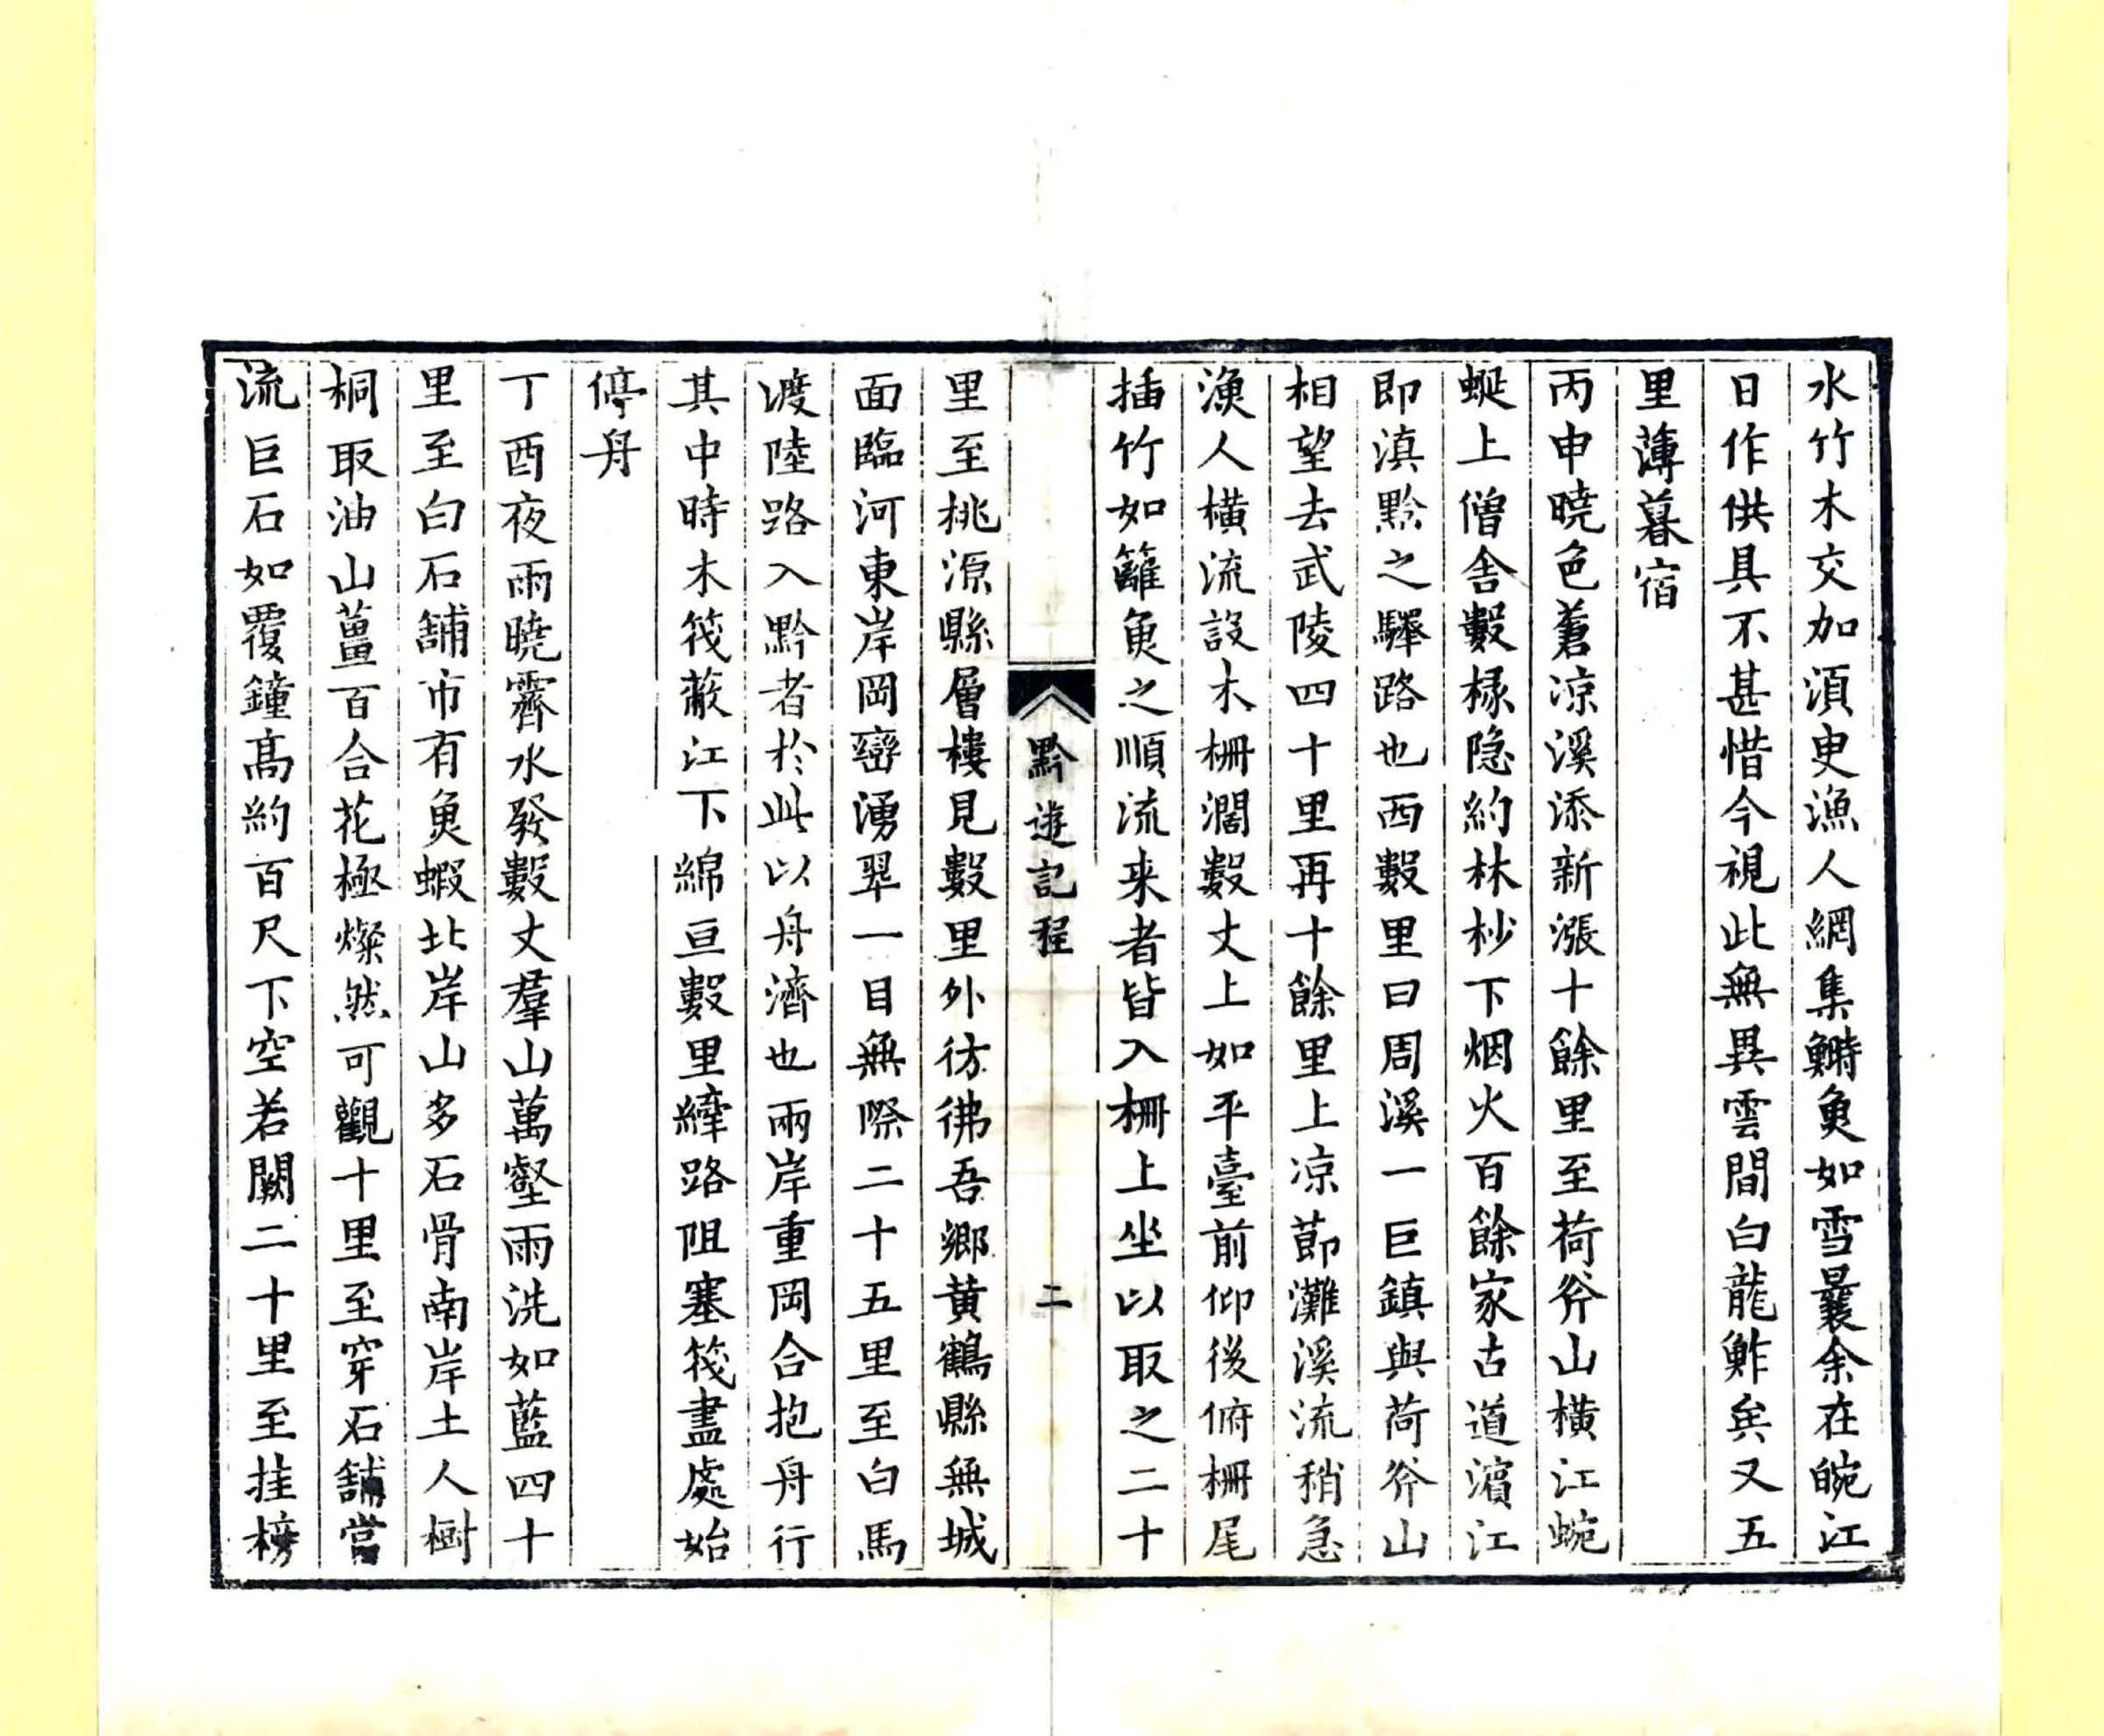 水竹木交加湏臾漁人網集鰣魚如雪曩余在皖江
日作供具不甚惜今視此無異雲間白龍鮓矣又五
里薄暮宿
丙申曉色蒼凉溪添新漲十餘里至荷斧山橫江蜿
蜒上僧舍數椽隐約林杪下烟火百餘家古道濵江
即滇黔之驛路也西數里曰周溪一巨鎮與荷斧山
相望去武陵四十里再十餘里上凉莭灘溪流稍急
漁人橫流設木柵濶數丈上如平臺前仰後俯柵尾
插竹如籬魚之順流来者皆入柵上坐以取之二十
黔遊記程
二
里至桃源縣層樓見數里外彷彿吾鄉黄鶴縣無城
面臨河東岸岡巒湧翠一目無際二十五里至白馬
渡陸路入黔者於此以舟濟也兩岸重岡合抱舟行
其中時木筏蔽江下綿亘數里縴路阻塞筏盡處始
停舟
丁酉夜雨曉霽水發數丈羣山萬壑雨洗如藍四十
里至白石舖市有魚蝦北岸山多石骨南岸土人樹
桐取油山薑百合花極燦然可觀十里至穿石舖當
流巨石如覆鐘高約百尺下空若闕二十里至挂榜